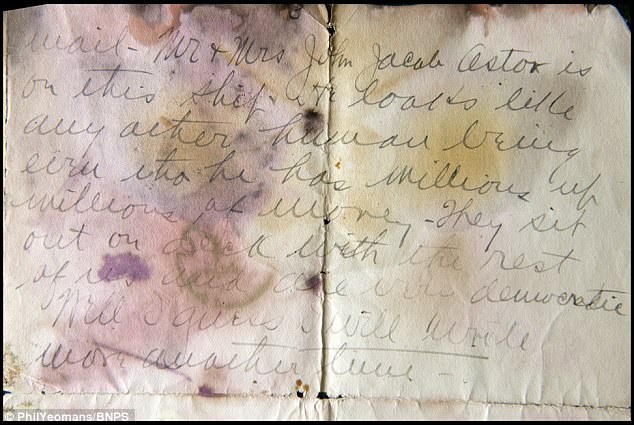 mail - Mr + Mrs John Jacob Astor is
on this ship. He looks like
any other human being
even tho he has millions up
millions of money - They sit
out on deck with the rest
of us and are very democratic
Well I guess I will write
more another time -
© PhilYeomans/BNPS